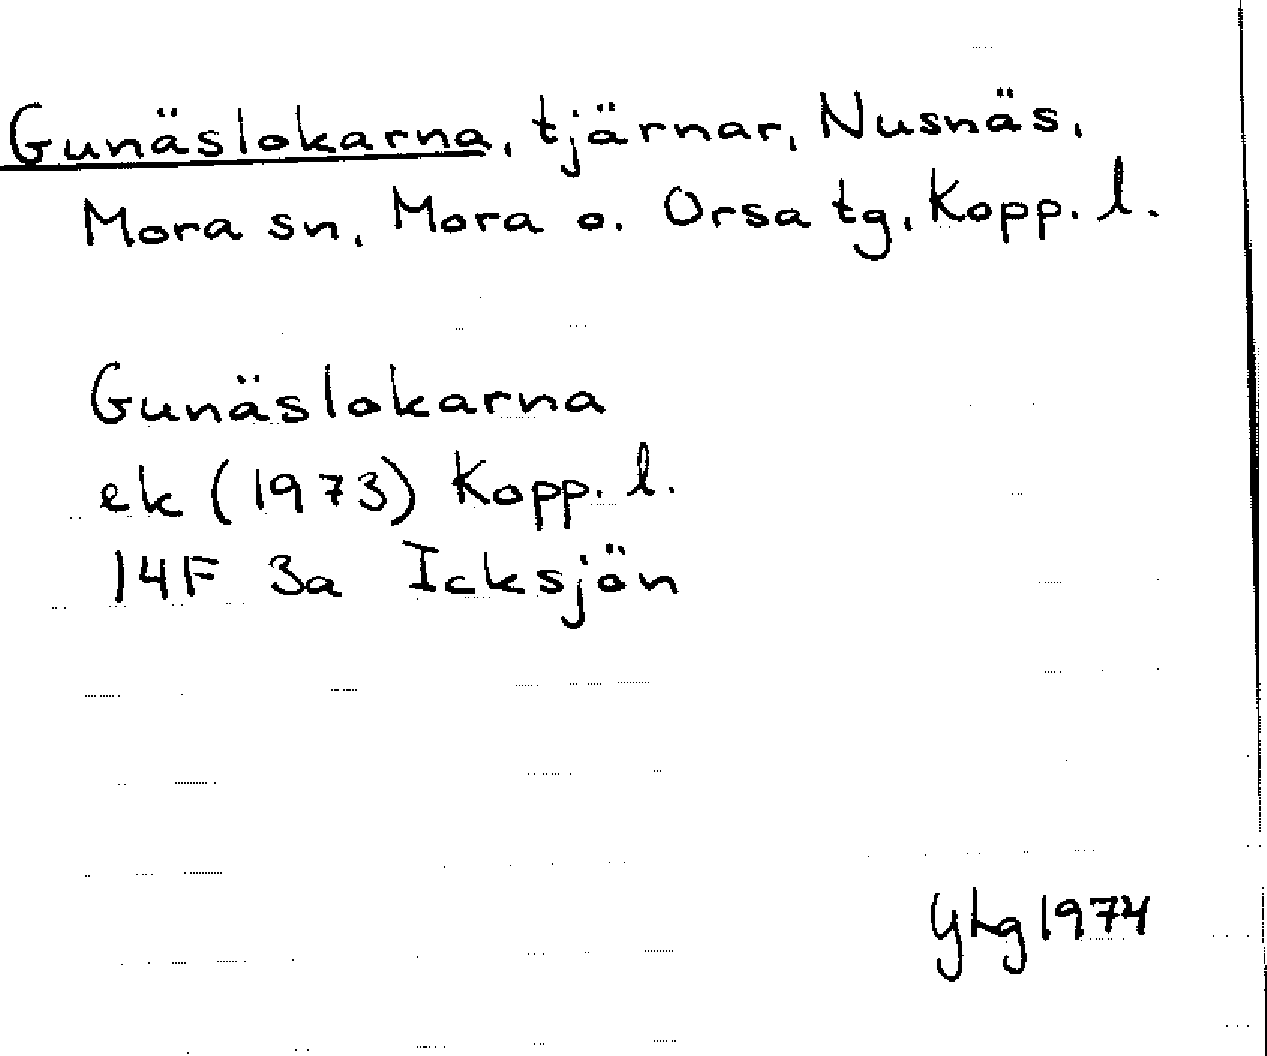 Gunäslokarna, tjärnar, Nusnäs,
Mora sn, Mora o. Orsa tg, Kopp. l.
Gunäslokarna
ek (1973) Kopp. l.
14F 3a Icksjön
1974